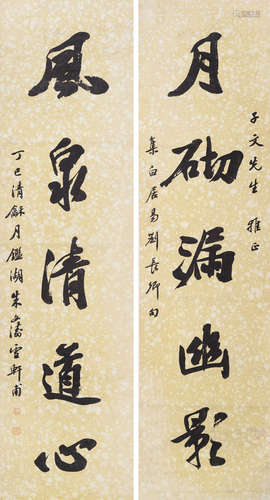 月砌漏幽影
子文先生 雅正
集白居易劉長卿句
風泉清道心
丁巳清龢月鑑湖朱 雪軒甫